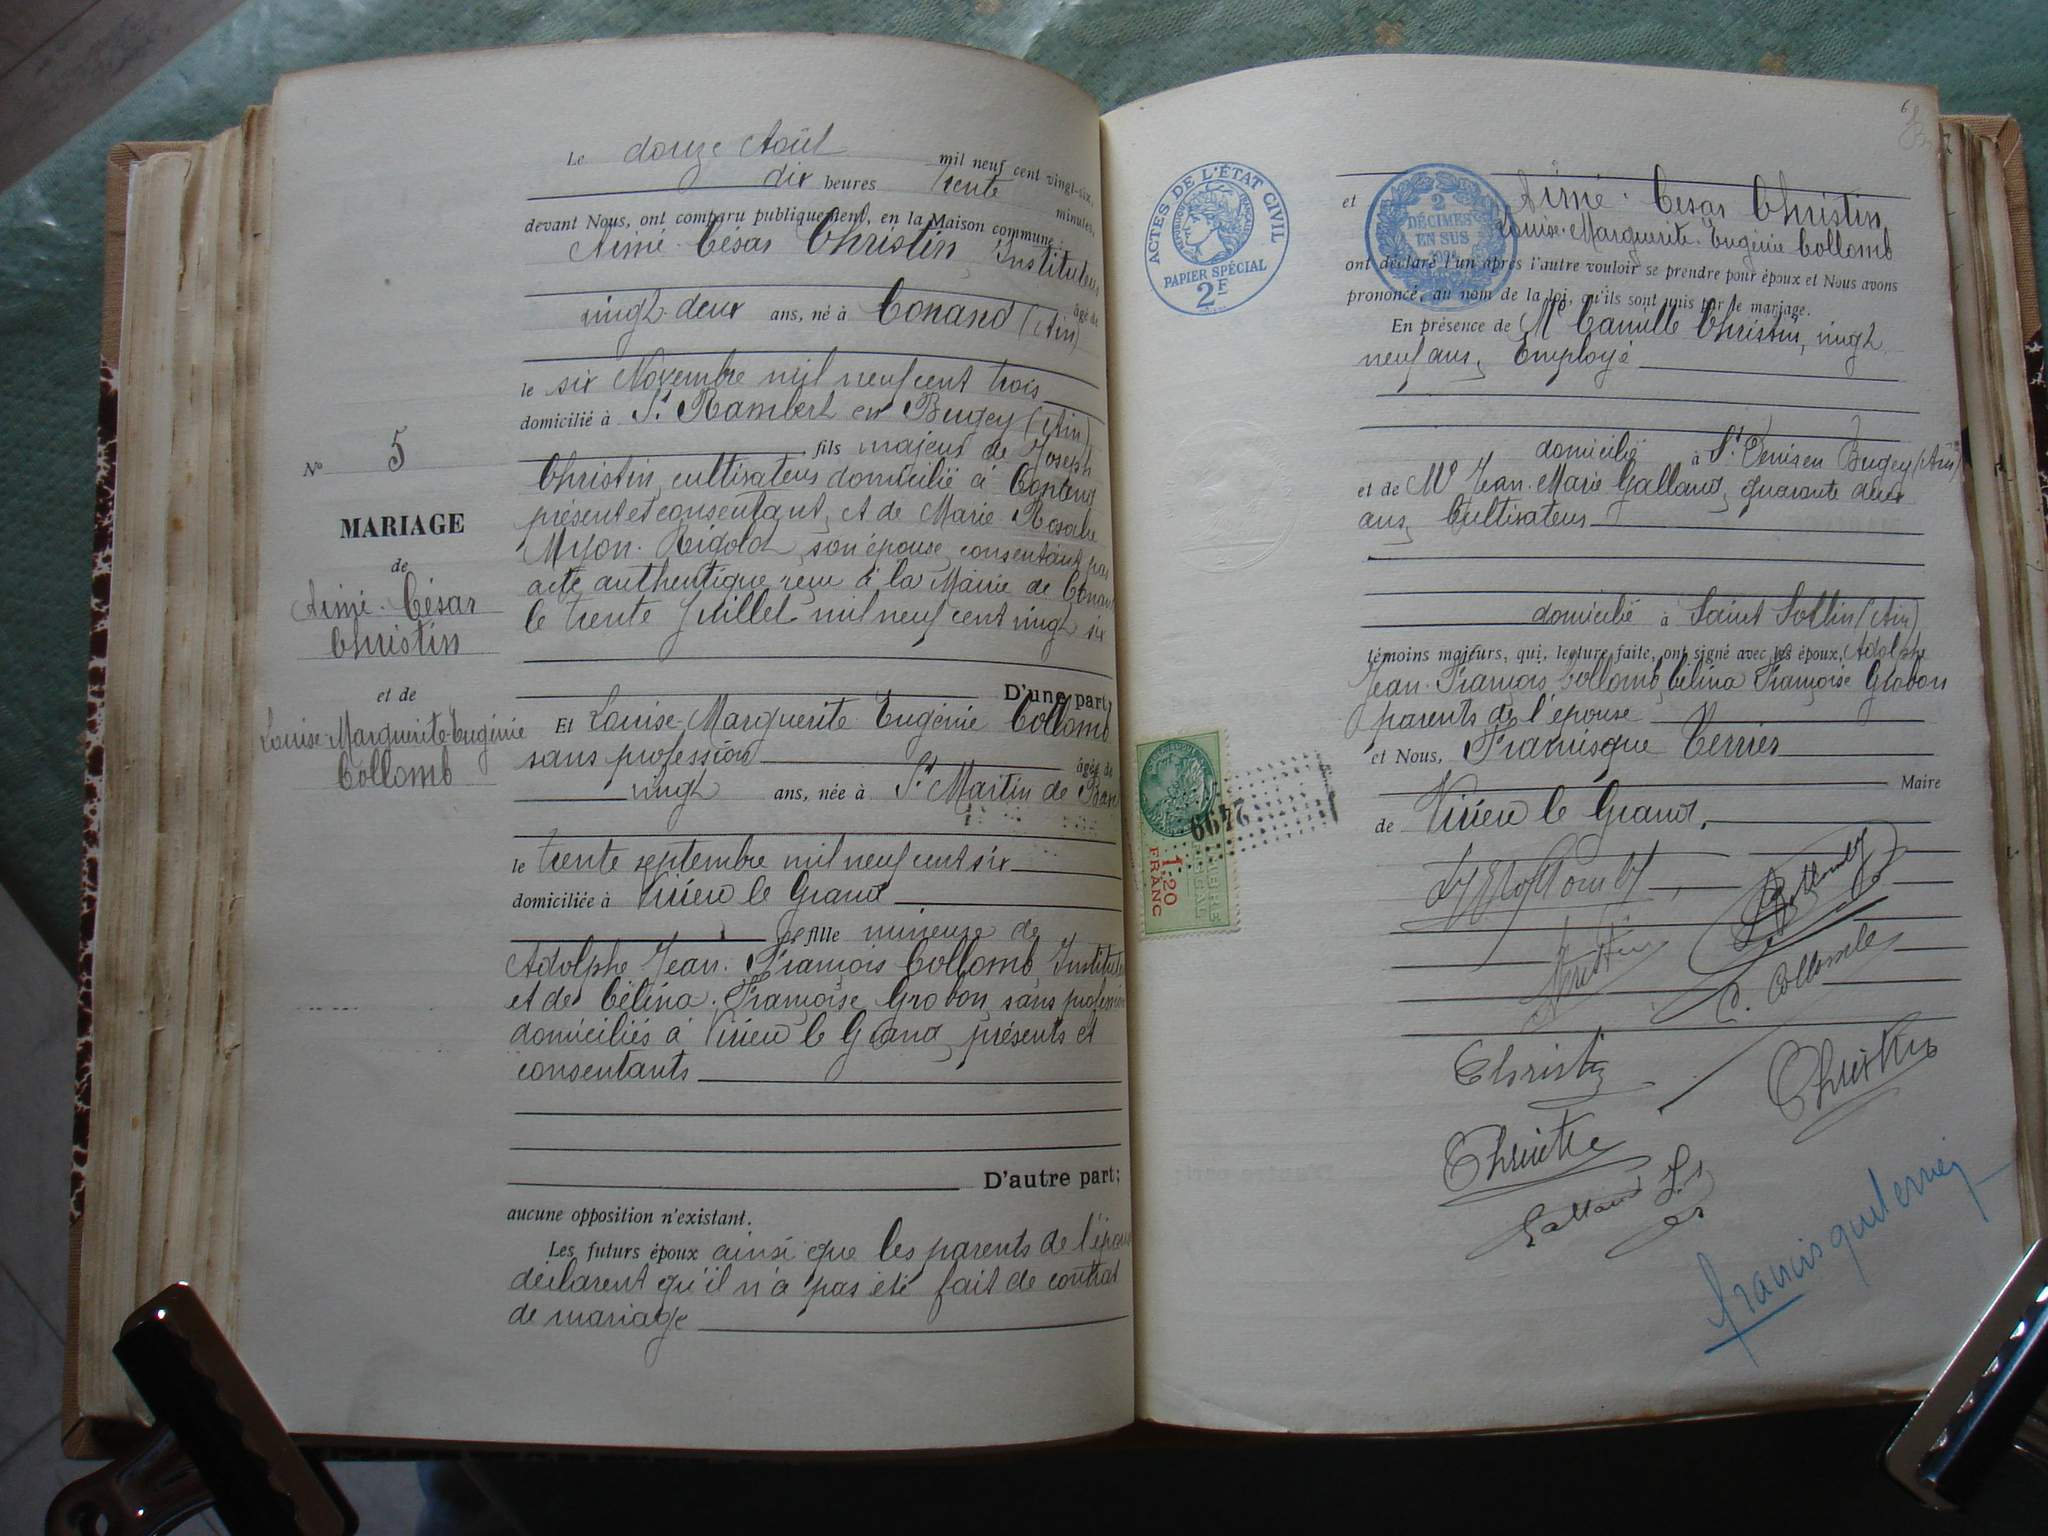 N° 5
MARIAGE
de
Aimé-César
Christin
et de
Louise-Marguerite-Eugénie
Collomb
Le douze Août mil neuf cent vingt-six,
dix heures trente minutes,
devant Nous, ont comparu publiquement, en la Maison commune :
Aimé César Christin Instituteur
âgé de
vingt-deux ans, né à Conand (Ain)
le six Novembre mil neuf cent trois
domicilié à St Rambert en Bugey (Ain)
fils majeur de Joseph
Christin, cultivateur domicilié à
présent et consentant, et de Marie-Rosalie
son épouse, consentant par
acte authentique reçu à la Mairie de Conand
le trente Juillet mil neuf cent vingt six
D'une part;
Et Louise-Marguerite Eugénie Collomb
sans profession âgée de
vingt ans, née à St Martin de
le trente septembre mil neuf cent six
domiciliée à Virieu le Grand
fille mineure de
Adolphe Jean-François Collomb, Institut
et de Célina-Françoise Grobon, sans profession
domiciliés à Virieu le Grand, présents et
consentants
D'autre part;
aucune opposition n'existant.
Les futurs époux ainsi que les parents de l'épouse
déclarent qu'il n'a pas été fait de contrat
de mariage
ACTES DE L'ÉTAT CIVIL
RÉPUBLIQUE FRANÇAISE
PAPIER SPÉCIAL
2F
2
DÉCIMES
EN SUS
et Aimé-César Christin
Louise-Marguerite-Eugénie Collomb
ont déclaré l'un après l'autre vouloir se prendre pour époux et Nous avons
prononcé, au nom de la loi, qu'ils sont unis par le mariage.
En présence de Mr Camille Christin, vingt
neuf ans, Employé
domicilié à St Denis en Bugey (Ain)
et de Mr Jean-Marie Galland, quarante deux
ans, Cultivateur
domicilié à Saint Sorlin (Ain)
témoins majeurs, qui, lecture faite, ont signé avec les époux, Adolphe
Jean-François Collomb, Célina Françoise Grobon
parents de l'épouse
et Nous, Francisque Terrier
Maire
de Virieu le Grand,
2499
1,20
FRANC
Collomb
Christin
C. Collomb
Christin
Christin
Christin
Galland
francisque terrier